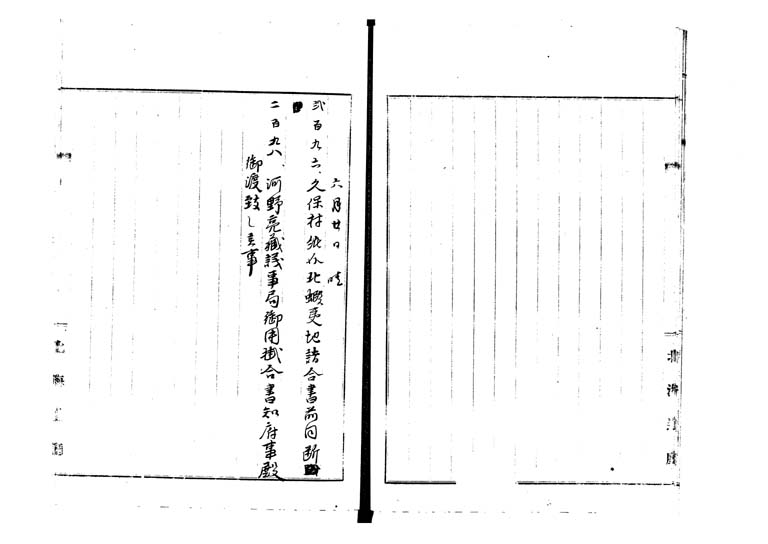 六月廿日 晴
弐百九六、久保村 北蝦夷地詰合書前同断
二百九八、河野亮蔵議事局御用掛合書知府事殿
御渡致し候事
北海道廳